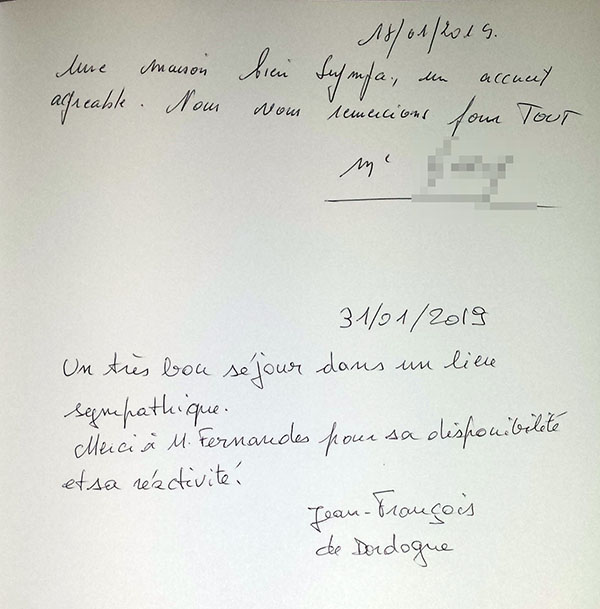 18/01/2019.
Une maison bien sympa, un accueil
agréable. Nous vous remercions pour TOUT
Mr
31/01/2019
Un très bon séjour dans un lieu
sympathique.
Merci à M. Fernandes pour sa disponibilité
et sa réactivité!
Jean-François
de Dordogne